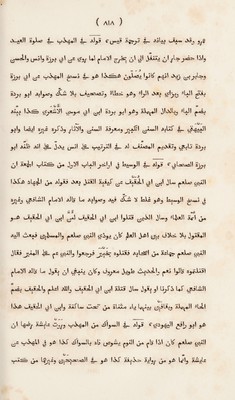 ( ٨٤٨ )
عرو وقد سيف بيانه في ترجمة قيس، قوله في المهذب في صلوة العيد
واذا حضر جاز ان يتنفّل الى ان يخرج الامام لما روى عن ابي برزة وانس والحسن
وجابر بن زيد انهم كانوا يصلّون هكذا هو في نسخ المهذب عن ابي برزة
بفتح الباء وبزاى بعد الراء وهو خطاء وتصحيف بلا شكّ وصوابه ابو بردة
بضم الباء وبالدال المهملة وهو ابو بردة ابن ابي موسى الأشعرى كذا بيّنه
البيهقى في كتابه السنن الكبير ومعرفة السنن والآثار وذكره غيره ايضا وابو
بردة تابعى وتقديم المصنّف له في الترتيب على انس يدلّ على انه ظنّه ابو
برزة الصحابى، قوله في الوسيط في اواخر الباب الاول من كتاب الجمعة ان
النبى صلعم سال ابن ابي الحقيق عن كيفية القتل بعد قفوله من الجهاد هكذا
في نسخ الوسيط وهو غلط لا شكّ فيه وصوابه ما قاله الامام الشافعى وغيره
من ائمّة العلماء وسال الذين قتلوا ابن ابي الحقيق لأنّ ابن ابي الحقيق هو
المقتول بلا خلاف بين اهل العلم كان يوذى النبى صلعم والمسلمين فبعث اليه
النبى صلعم جماعة من الصحابة فقتلوه بخيبر فرجعوا والنبى صلعم على المنبر فقال
اقتلتموه قالوا نعم والحديث طويل معروف وكان ينبغى ان يقول ما قاله الامام
الشافعى كما ذكرنا او يقول سال قتلة ابن ابي الحقيق والله اعلم والحقيق بضم
الحاء المهملة وبقافين بينهما ياء مثناة من تحت ساكنة وابن ابي الحقيق هذا
هو ابو رافع اليهودى، قوله في السواك من المهذب وروت عايشة رضها ان
النبى صلعم كان اذا قام من النوم يشوص فاه بالسواك كذا هو في المهذب عن
عايشة وانّما هو من رواية حذيفة كذا هو في الصحيحين وغيرها من كتب